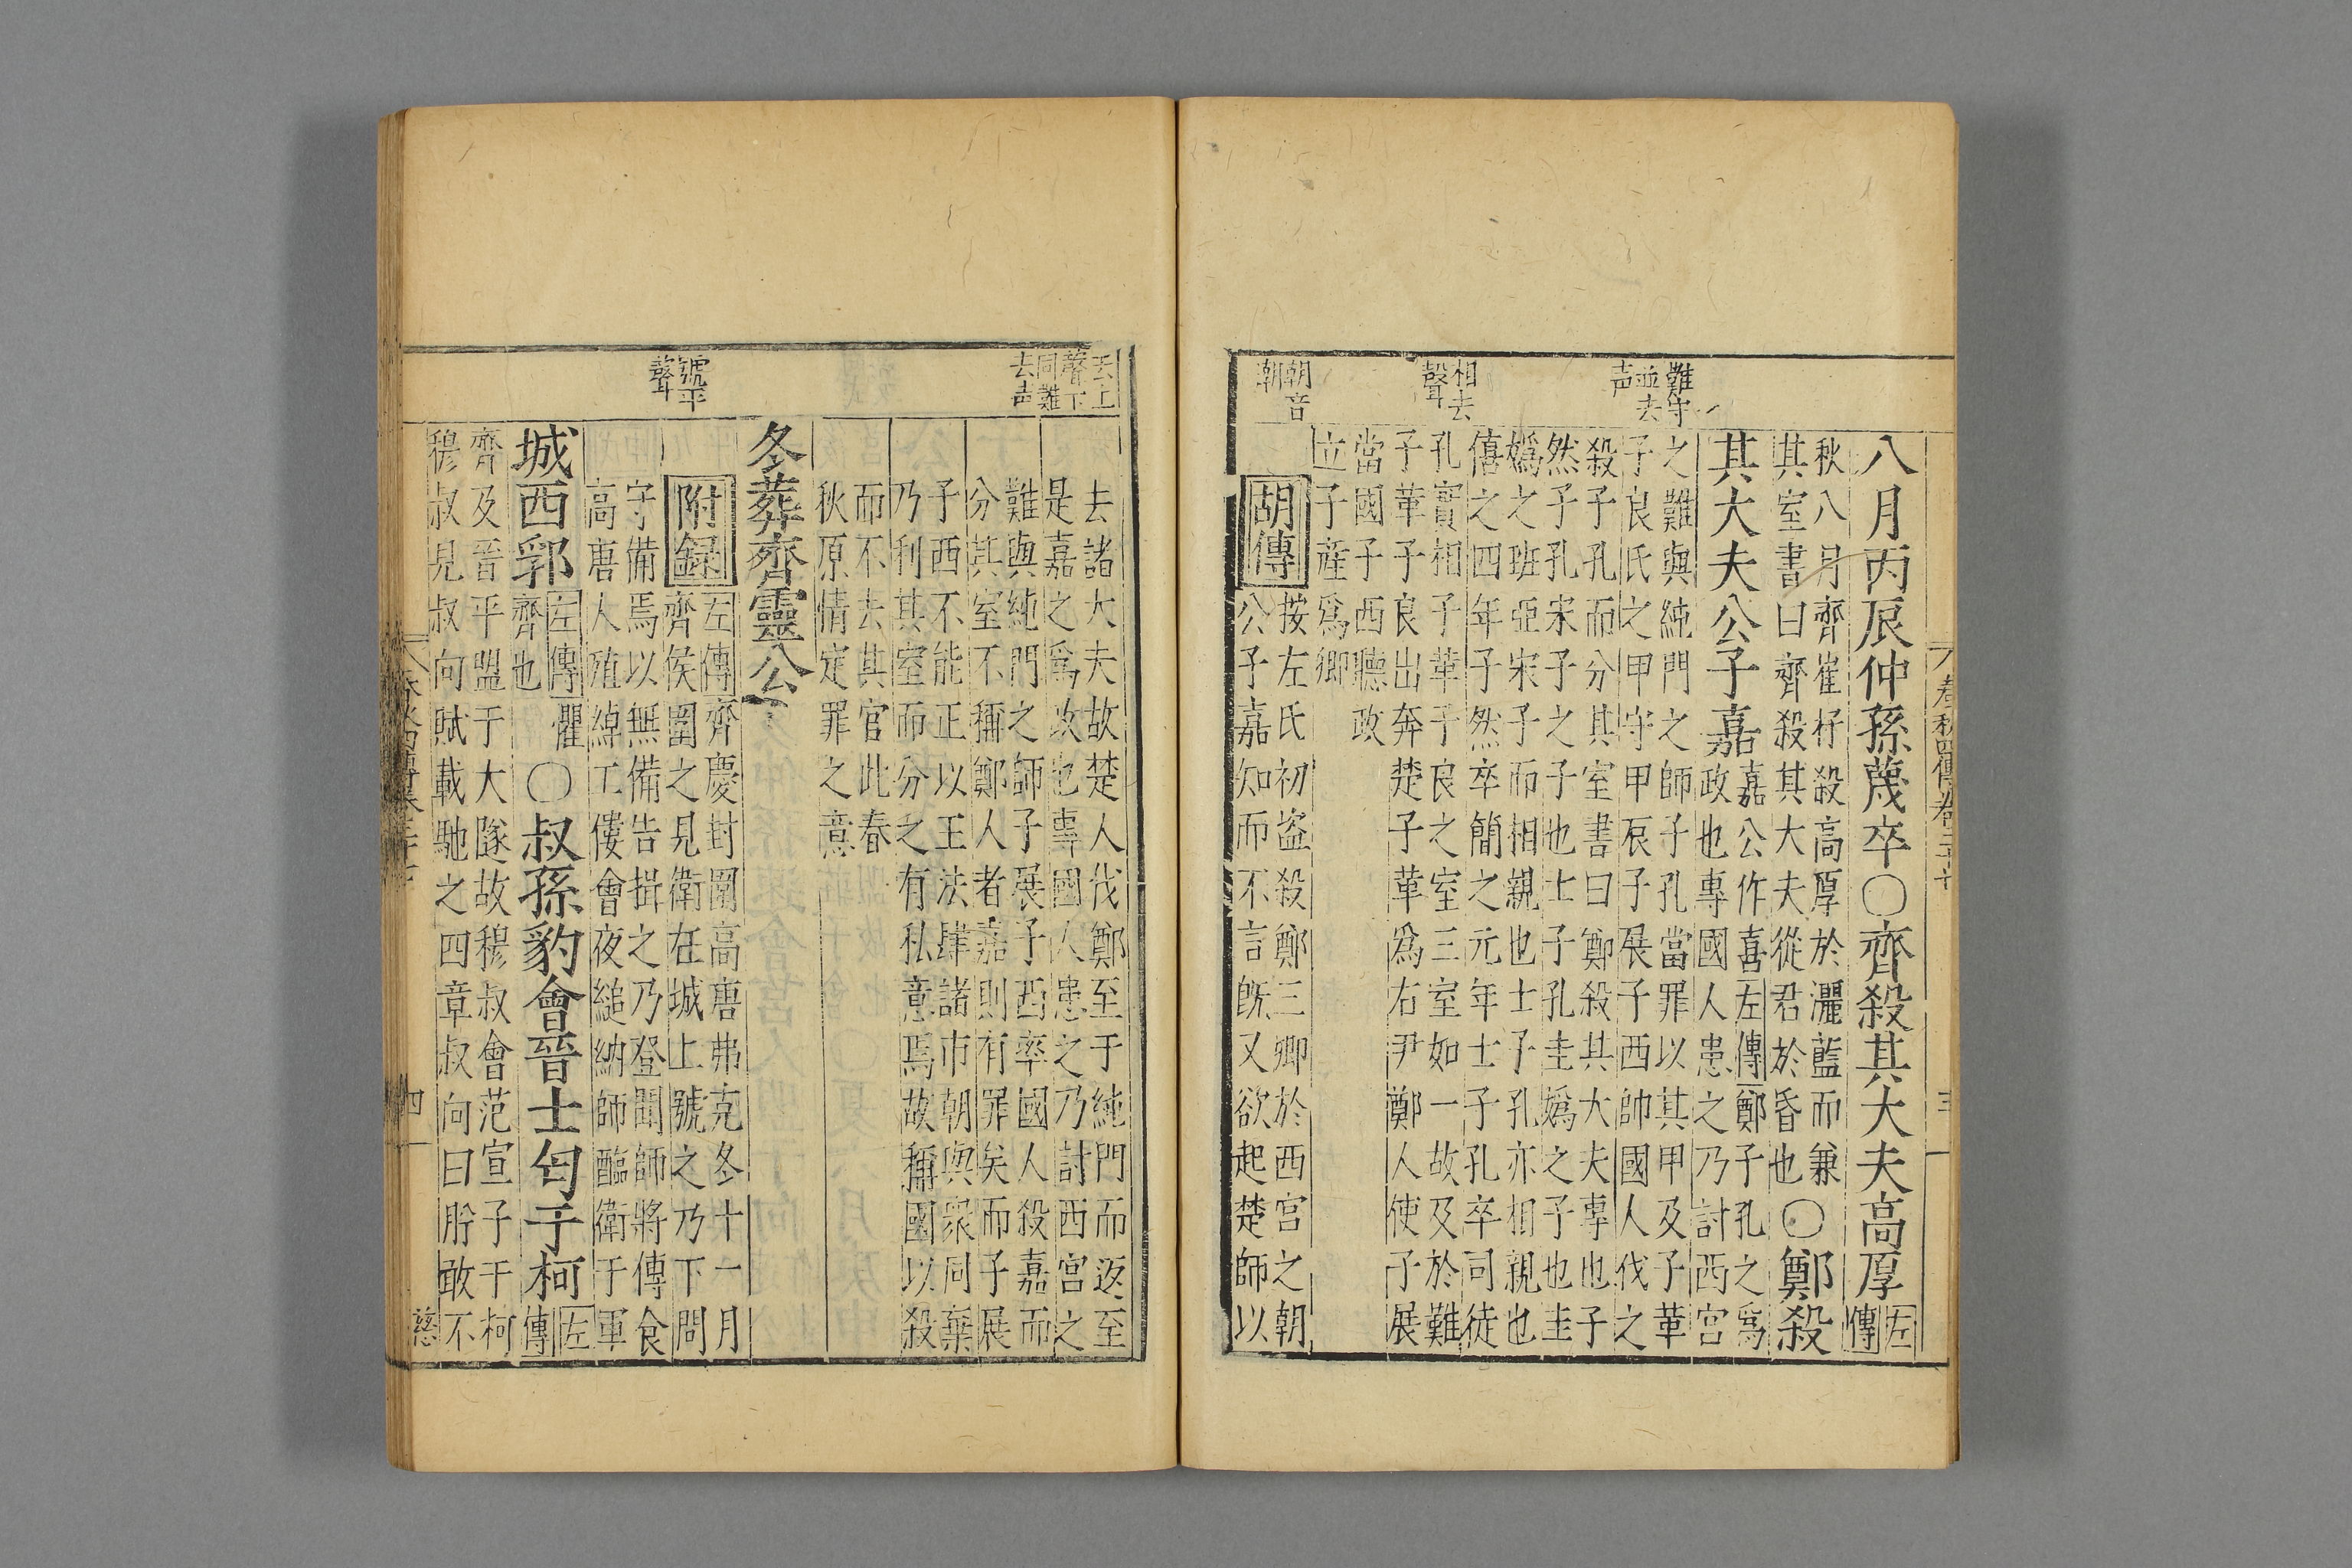 難守
並去
声
相去
聲
朝音
朝
八月丙辰仲孫蔑卒○齊殺其大夫高厚左傳
秋八月齊崔杼殺高厚於灑藍而兼
其室書曰齊殺其大夫從君於昏也○鄭殺
其大夫公子嘉嘉公作喜左傳鄭子孔之爲
政也專國人患之乃討西宮
之難與純門之師子孔當罪以其甲及子革
子良氏之甲守甲辰子展子西帥國人伐之
殺子孔而分其室書曰鄭殺其大夫專也子
然子孔宋子之子也士子孔圭嬀之子也圭
嬀之班亞宋子而相親也士子孔亦相親也
僖之四年子然卒簡之元年士子孔卒司徒
孔實相子革子良之室三室如一故及於難
子革子良出奔楚子革爲右尹鄭人使子展
當國子西聽政
立子産爲卿
胡傳按左氏初盗殺鄭三卿於西宮之朝
公子嘉知而不言旣又欲起楚師以
去上
聲下
同難
去声
號平
聲
去諸大夫故楚人伐鄭至于純門而返至
是嘉之爲政也專國人患之乃討西宮之
難與純門之師子展子西率國人殺嘉而
分其室不稱鄭人者嘉則有罪矣而子展
子西不能正以王法肆諸市朝與衆同棄
乃利其室而分之有私意焉故稱國以殺
而不去其官此春
秋原情定罪之意
冬葬齊靈公
附録左傳齊慶封圍高唐弗克冬十一月
齊侯圍之見衛在城上號之乃下問
守備焉以無備告揖之乃登聞師將傳食
高唐人殖綽工僂會夜縋納師醢衛于軍
城西郛左傳懼齊也○叔孫豹會晉士匄于柯左傳
齊及晉平盟于大隧故穆叔會范宣子于柯
穆叔見叔向賦載馳之四章叔向曰肸敢不
四
慈